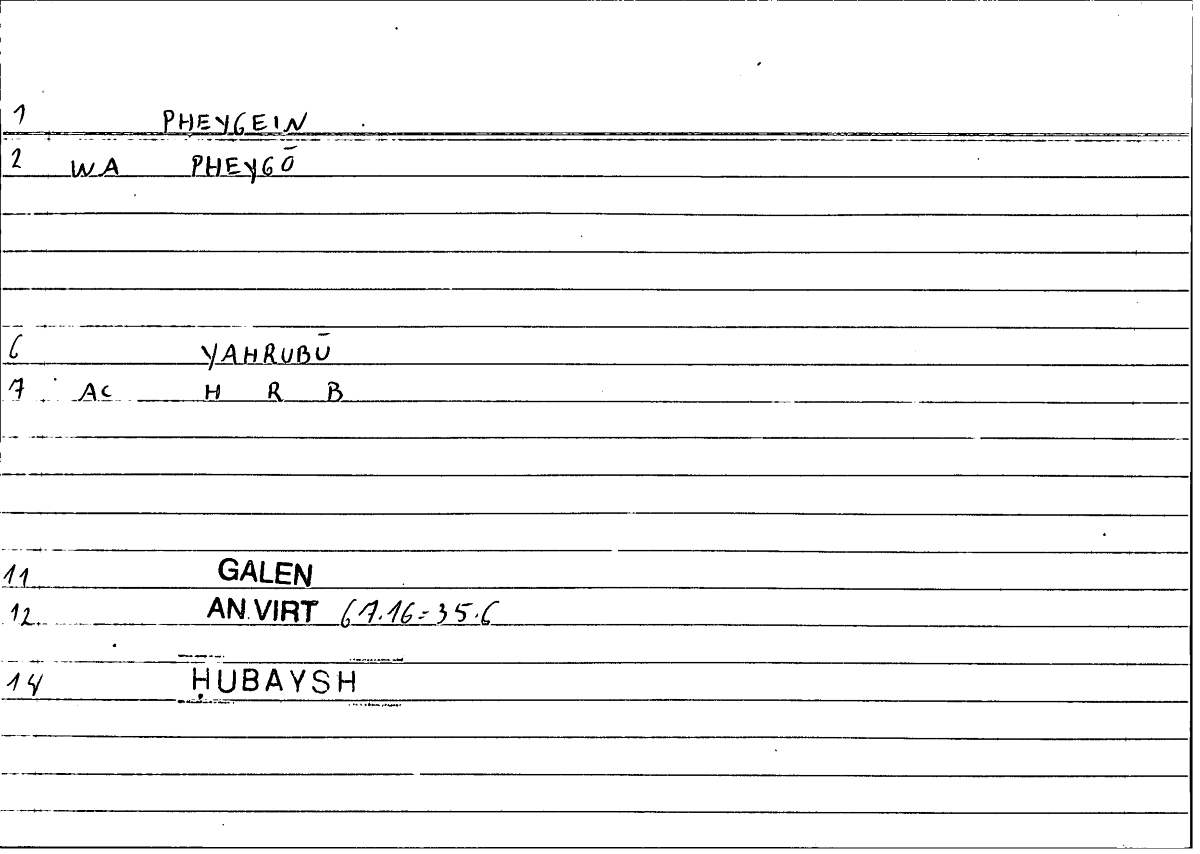 1 PHEYGEIN
2 WA PHEYGŌ
6 YAHRUBŪ
7 AC H R B
11 GALEN
12 AN.VIRT 67.16=35.6
14 ḤUBAYSH